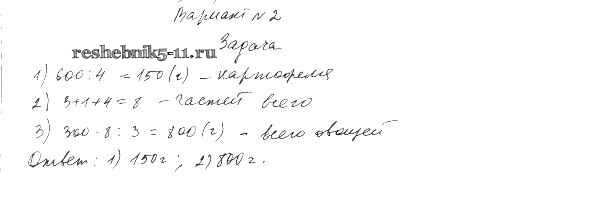 Вариант № 2
Задача
reshebnik5-11.ru
1) 600 : 4 = 150 (г) – картофеля
2) 3+1+4 = 8 – частей всего
3) 300 · 8 : 3 = 800 (г) – всего овощей
Ответ: 1) 150 г ; 2) 800 г.